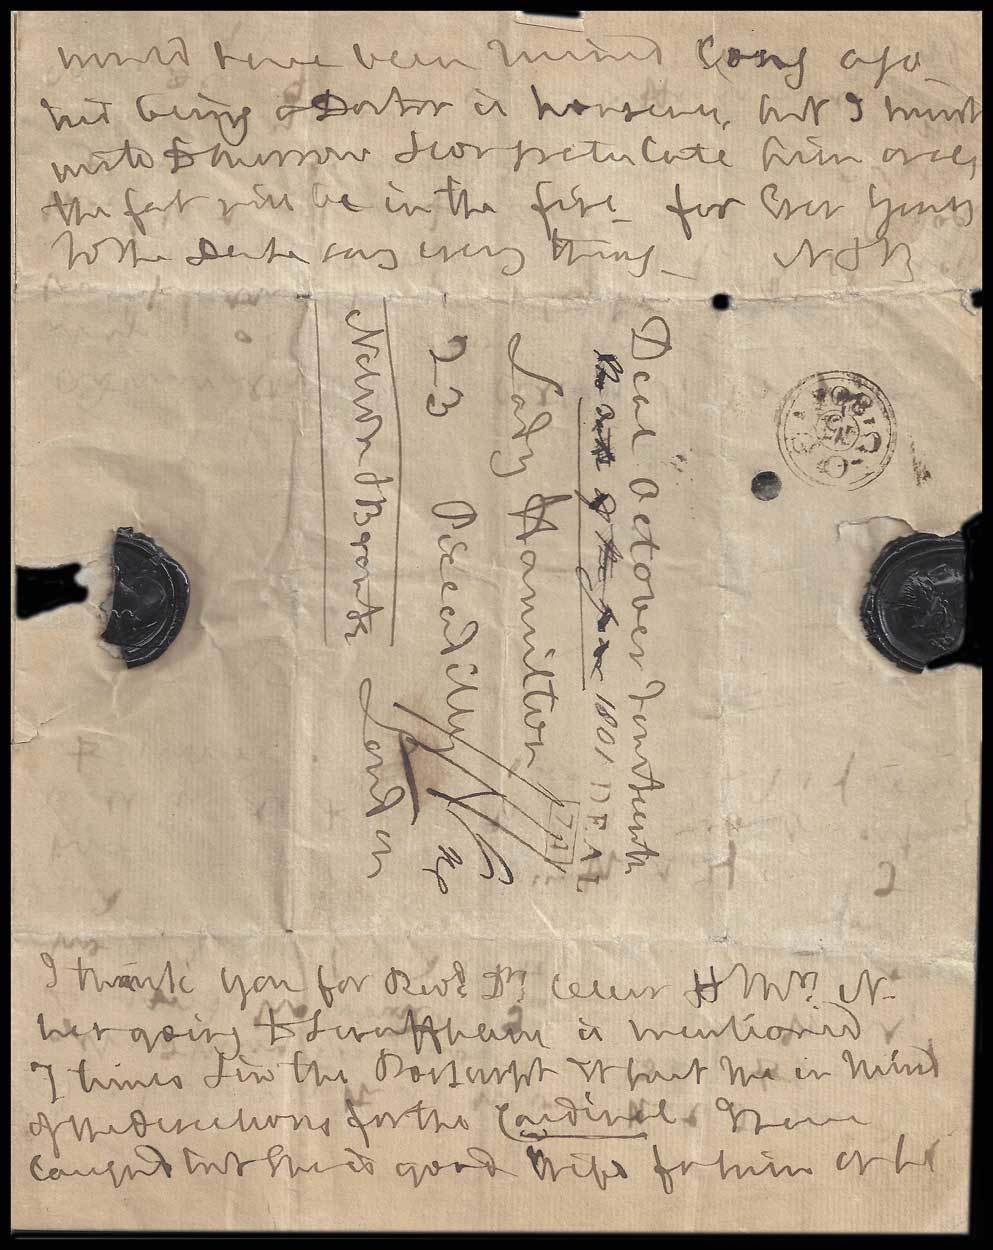 would have been ruined long ago
his being a Doctor is nonsense, but I must
write tomorrow & congratulate him or els
the fat will be in the fire for Ever Yours
To the Duke say every thing N & B
Deal October Fourteenth
1801 DEAL
Lady Hamilton
23 Piccadilly
London
Nelson & Bronte
I thank you for Revd Dr. letter to Mrs. N.
her going to Swaffham is mentioned
7 times & in the Postscript it put me in mind
of the directions for the Cardinal I have
laughed but she is a good Wife for him or he